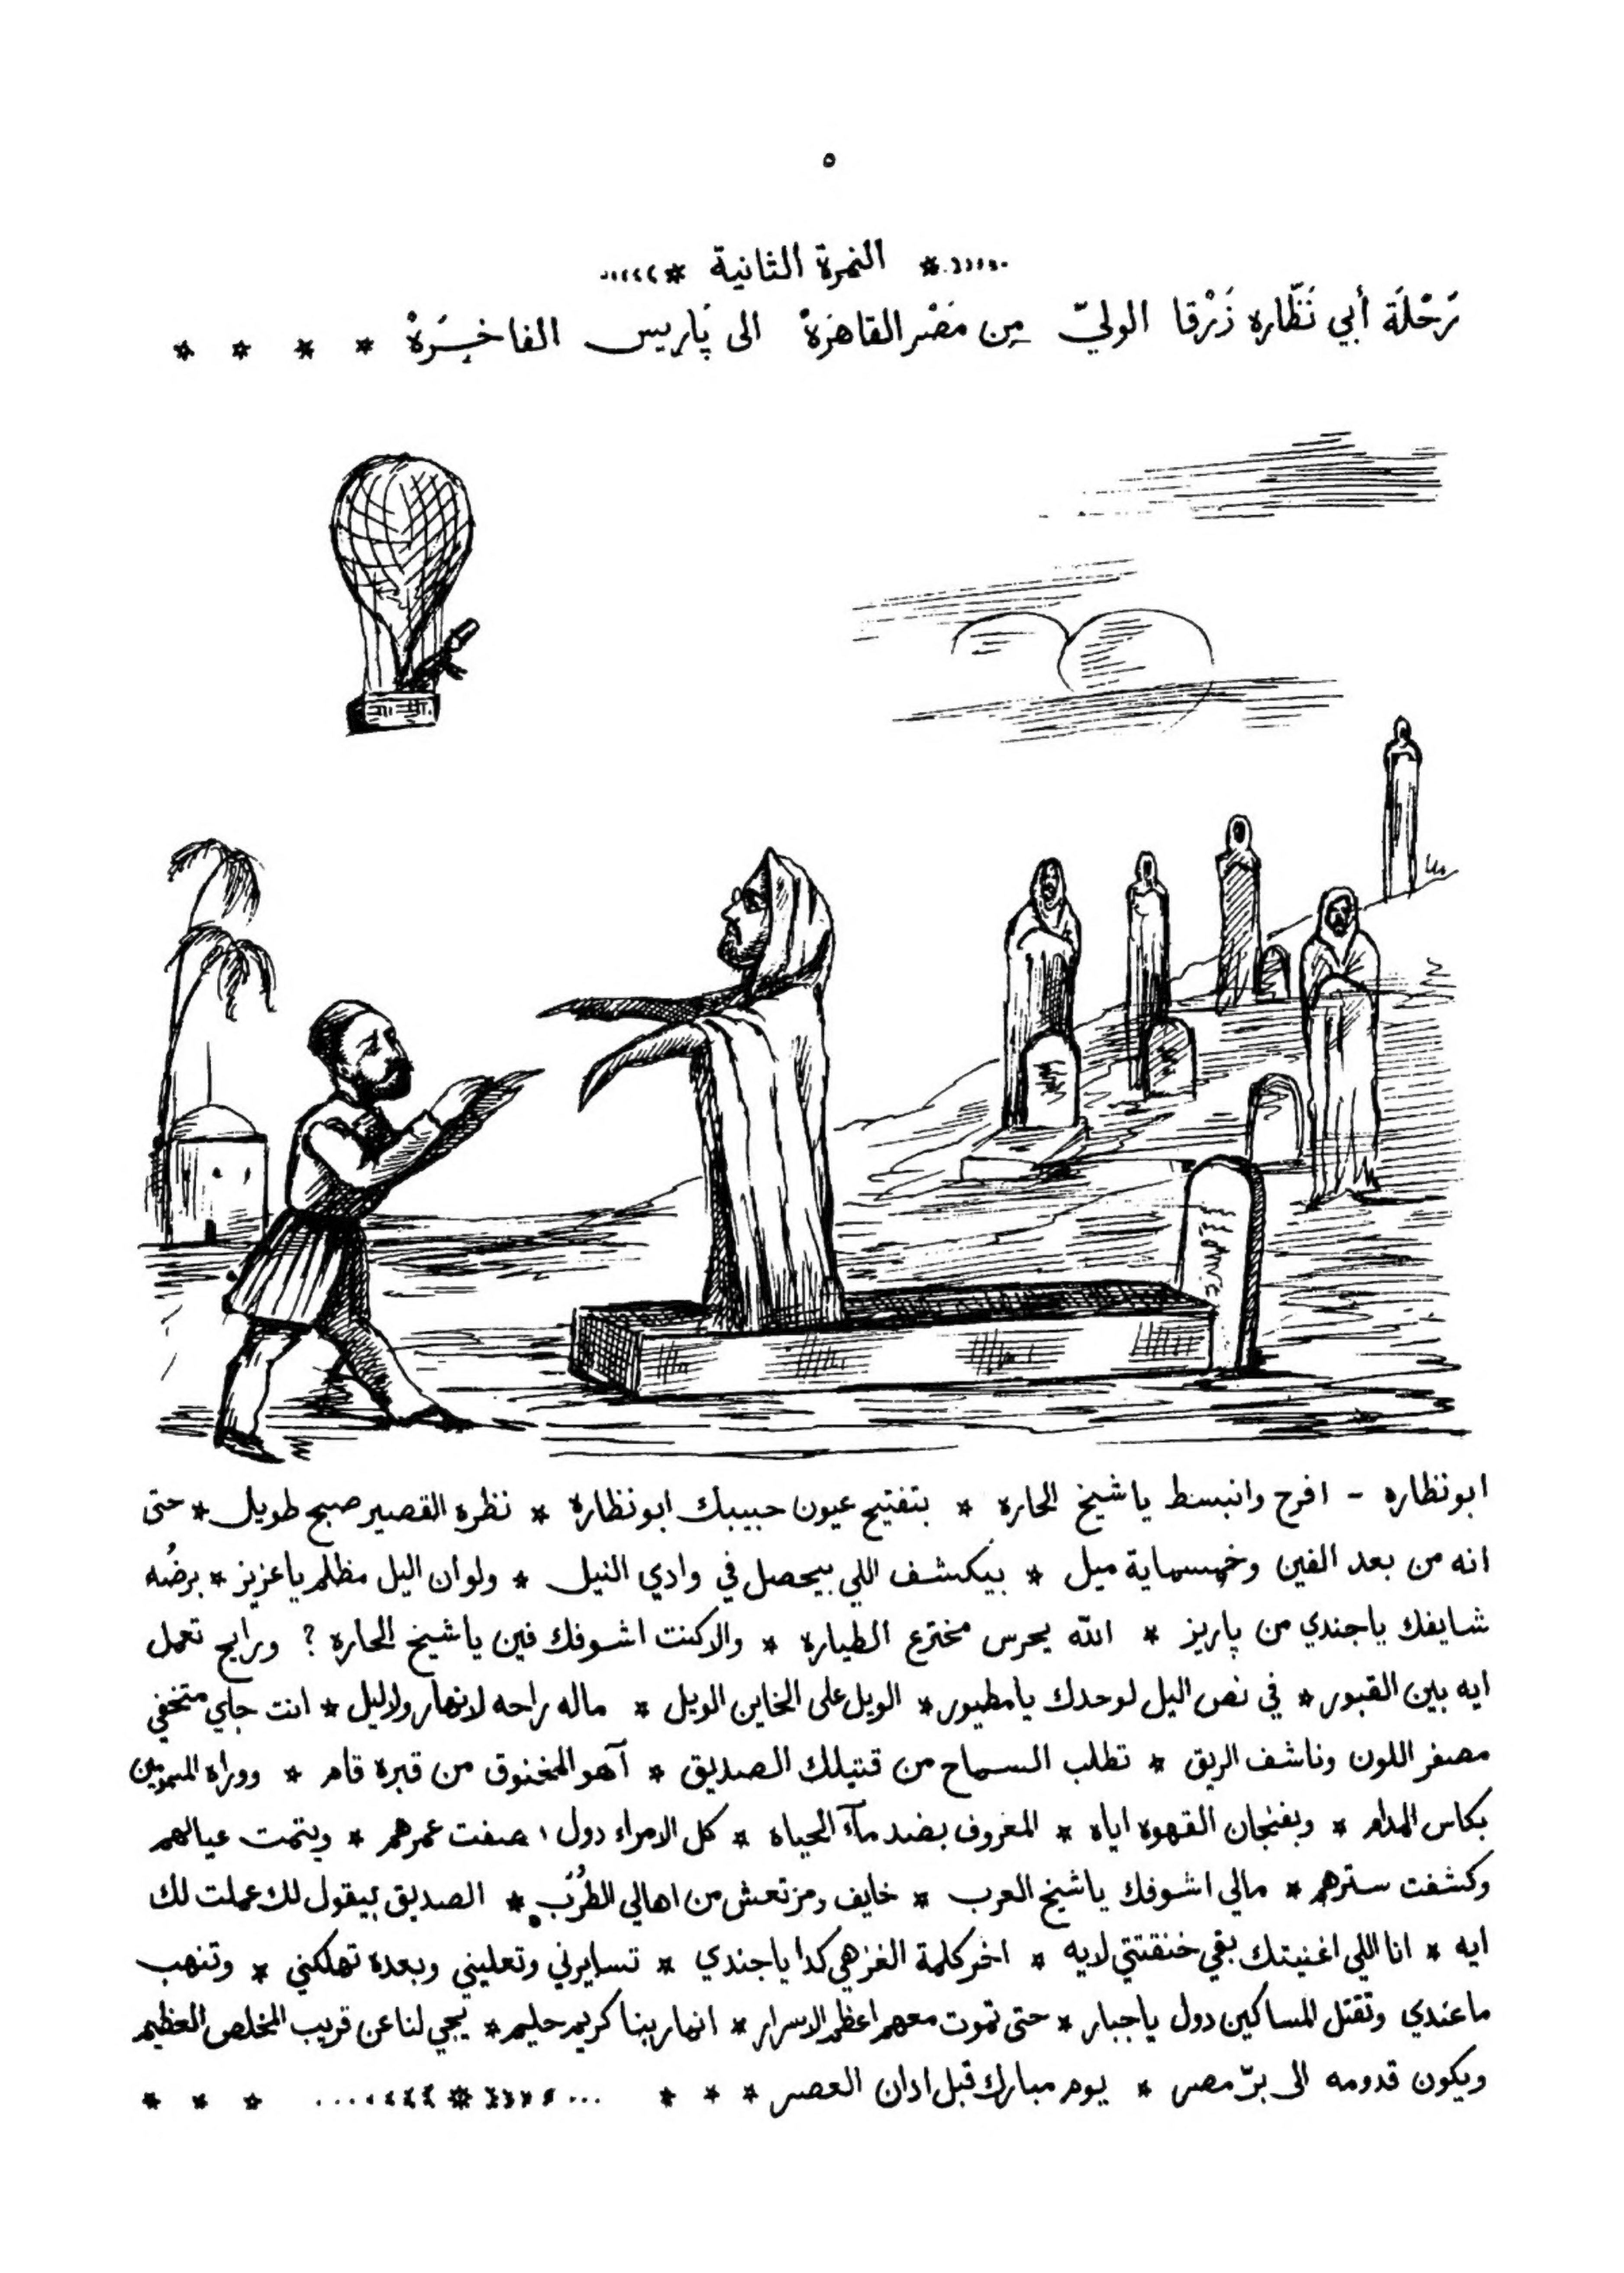 ٥
* النمرة الثانية *
رَحْلَة أبي نَظّاره زَرْقا الوليّ مِن مَصْر القاهرَةْ الى پَاريس الفاخِرَةْ * * * *
ابونظاره - افرح وانبسط ياشيخ الحاره * بتفتيح عيون حبيبك ابونظارة * نظره القصير صبح طويل * حتى
انه من بعد الفين وخمسماية ميل * بيكشف اللي بيحصل في وادي النيل * ولو ان اليل مظلم ياعزيز * برضُه
شايفك ياجندي من پاريز * الله يحرس مخترع الطيارة * والا كنت اشوفك فين ياشيخ الحاره ؟ ورايح تعمل
ايه بين القبور * في نص اليل لوحدك يامطيور * الويل على الخاين الويل * ماله راحه لانهار ولاليل * انت جاي متخفي
مصفر اللون وناشف الريق * تطلب السماح من قتيلك الصديق * آهو المخنوق من قبره قام * ووراه المسمومين
بكاس المدام * وبفنجان القهوه اياه * المعروف بضد مآء الحياه * كل الامراء دول ، صفت عمرهم * ويتمت عيالهم
وكشفت سترهم * مالي اشوفك ياشيخ العرب * خايف ومرتعش من اهالي الطُرَب * الصديق بيقول لك عملت لك
ايه * انا اللي اغنيتك بقي خنقتني لايه * اخر كلمة الغز هي كدا ياجندي * تسايرني وتعليني وبعده تهلكني * وتنهب
ماعندي وتقتل المساكين دول ياجبار * حتى تموت معهم اعظم الاسرار * انما ربنا كريم حليم * يجي لنا عن قريب المخلص العظيم
ويكون قدومه الى برّ مصر * يوم مبارك قبل ادان العصر * * * * * * *